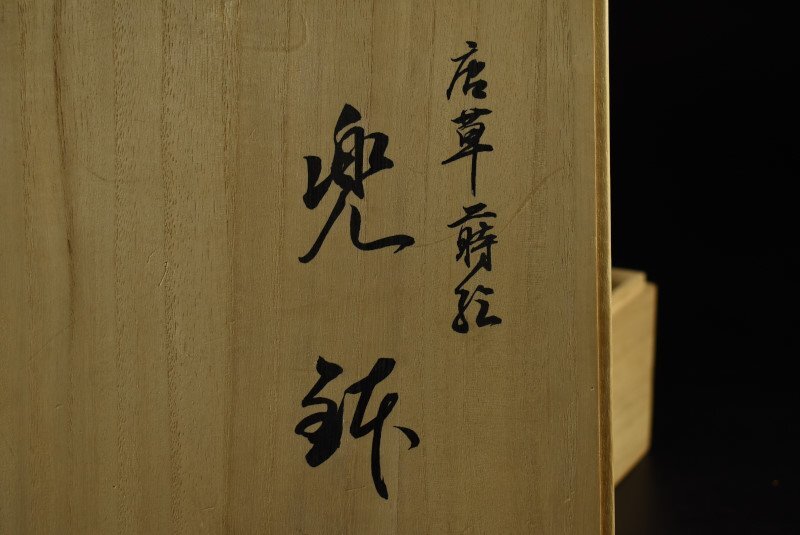 唐草蒔絵
兜鉢